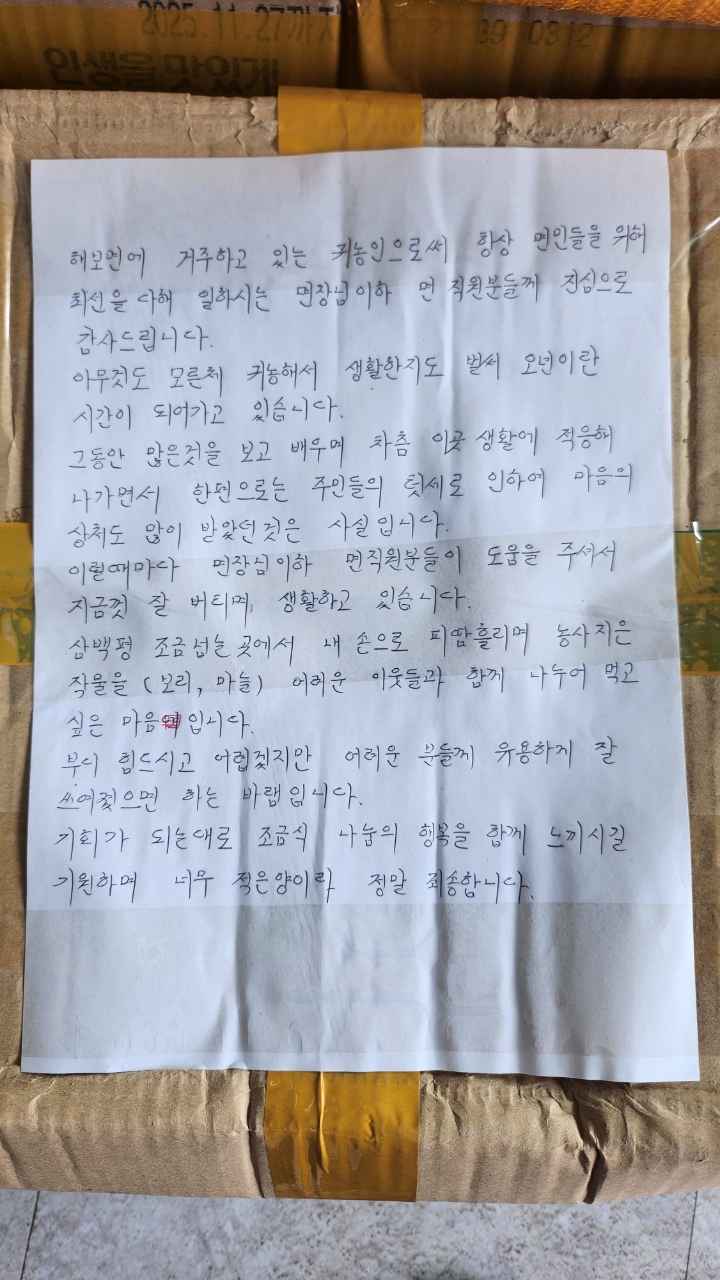 2025.11.27까지
39 0312
인생을 맛있게
해보면에 거주하고 있는 귀농인으로써 항상 면민들을 위해
최선을 다해 일하시는 면장님이하 면 직원분들께 진심으로
감사드립니다.
아무것도 모른체 귀농해서 생활한지도 벌써 오년이란
시간이 되어가고 있습니다.
그동안 많은것을 보고 배우며 차츰 이곳 생활에 적응해
나가면서 한편으로는 주민들의 텃세로 인하여 마음의
상처도 많이 받았던 것은 사실입니다.
이럴때마다 면장님이하 면직원분들이 도움을 주셔서
지금껏 잘 버티며 생활하고 있습니다.
삼백평 조금넘는 곳에서 내 손으로 피땀흘리며 농사지은
작물을 (보리, 마늘) 어려운 이웃들과 함께 나누어 먹고
싶은 마음입니다.
부디 힘드시고 어렵겠지만 어려운 분들께 유용하게 잘
쓰여졌으면 하는 바램입니다.
기회가 되는대로 조금식 나눔의 행복을 함께 느끼시길
기원하며 너무 적은양이라 정말 죄송합니다.